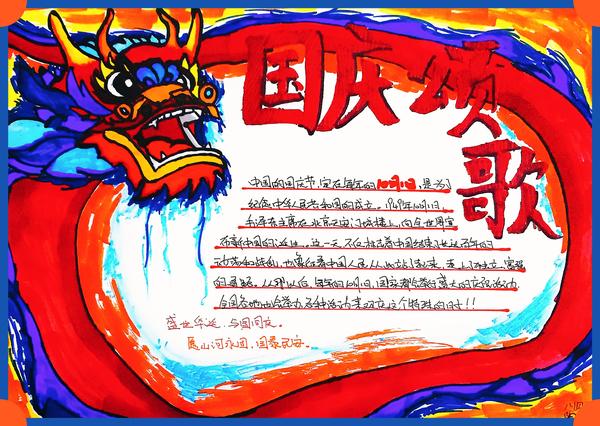 国庆颂歌
中国的国庆节,定在每年的10月1日,是为了
纪念中华人民共和国的成立。1949年10月1日,
毛泽东主席在北京天安门城楼上,向全世界宣
布新中国的诞生。这一天不仅标志着中国结束了长达百年的
动荡和战乱,也象征着中国人民从此站了起来,走上了独立、富强
的道路。从那以后,每年的10月1日,国家都会举行盛大的庆祝活动
全国各地也会举办各种活动来欢庆这个特殊的日子!!
盛世华诞,与国同庆。
愿山河永固,国泰民安。